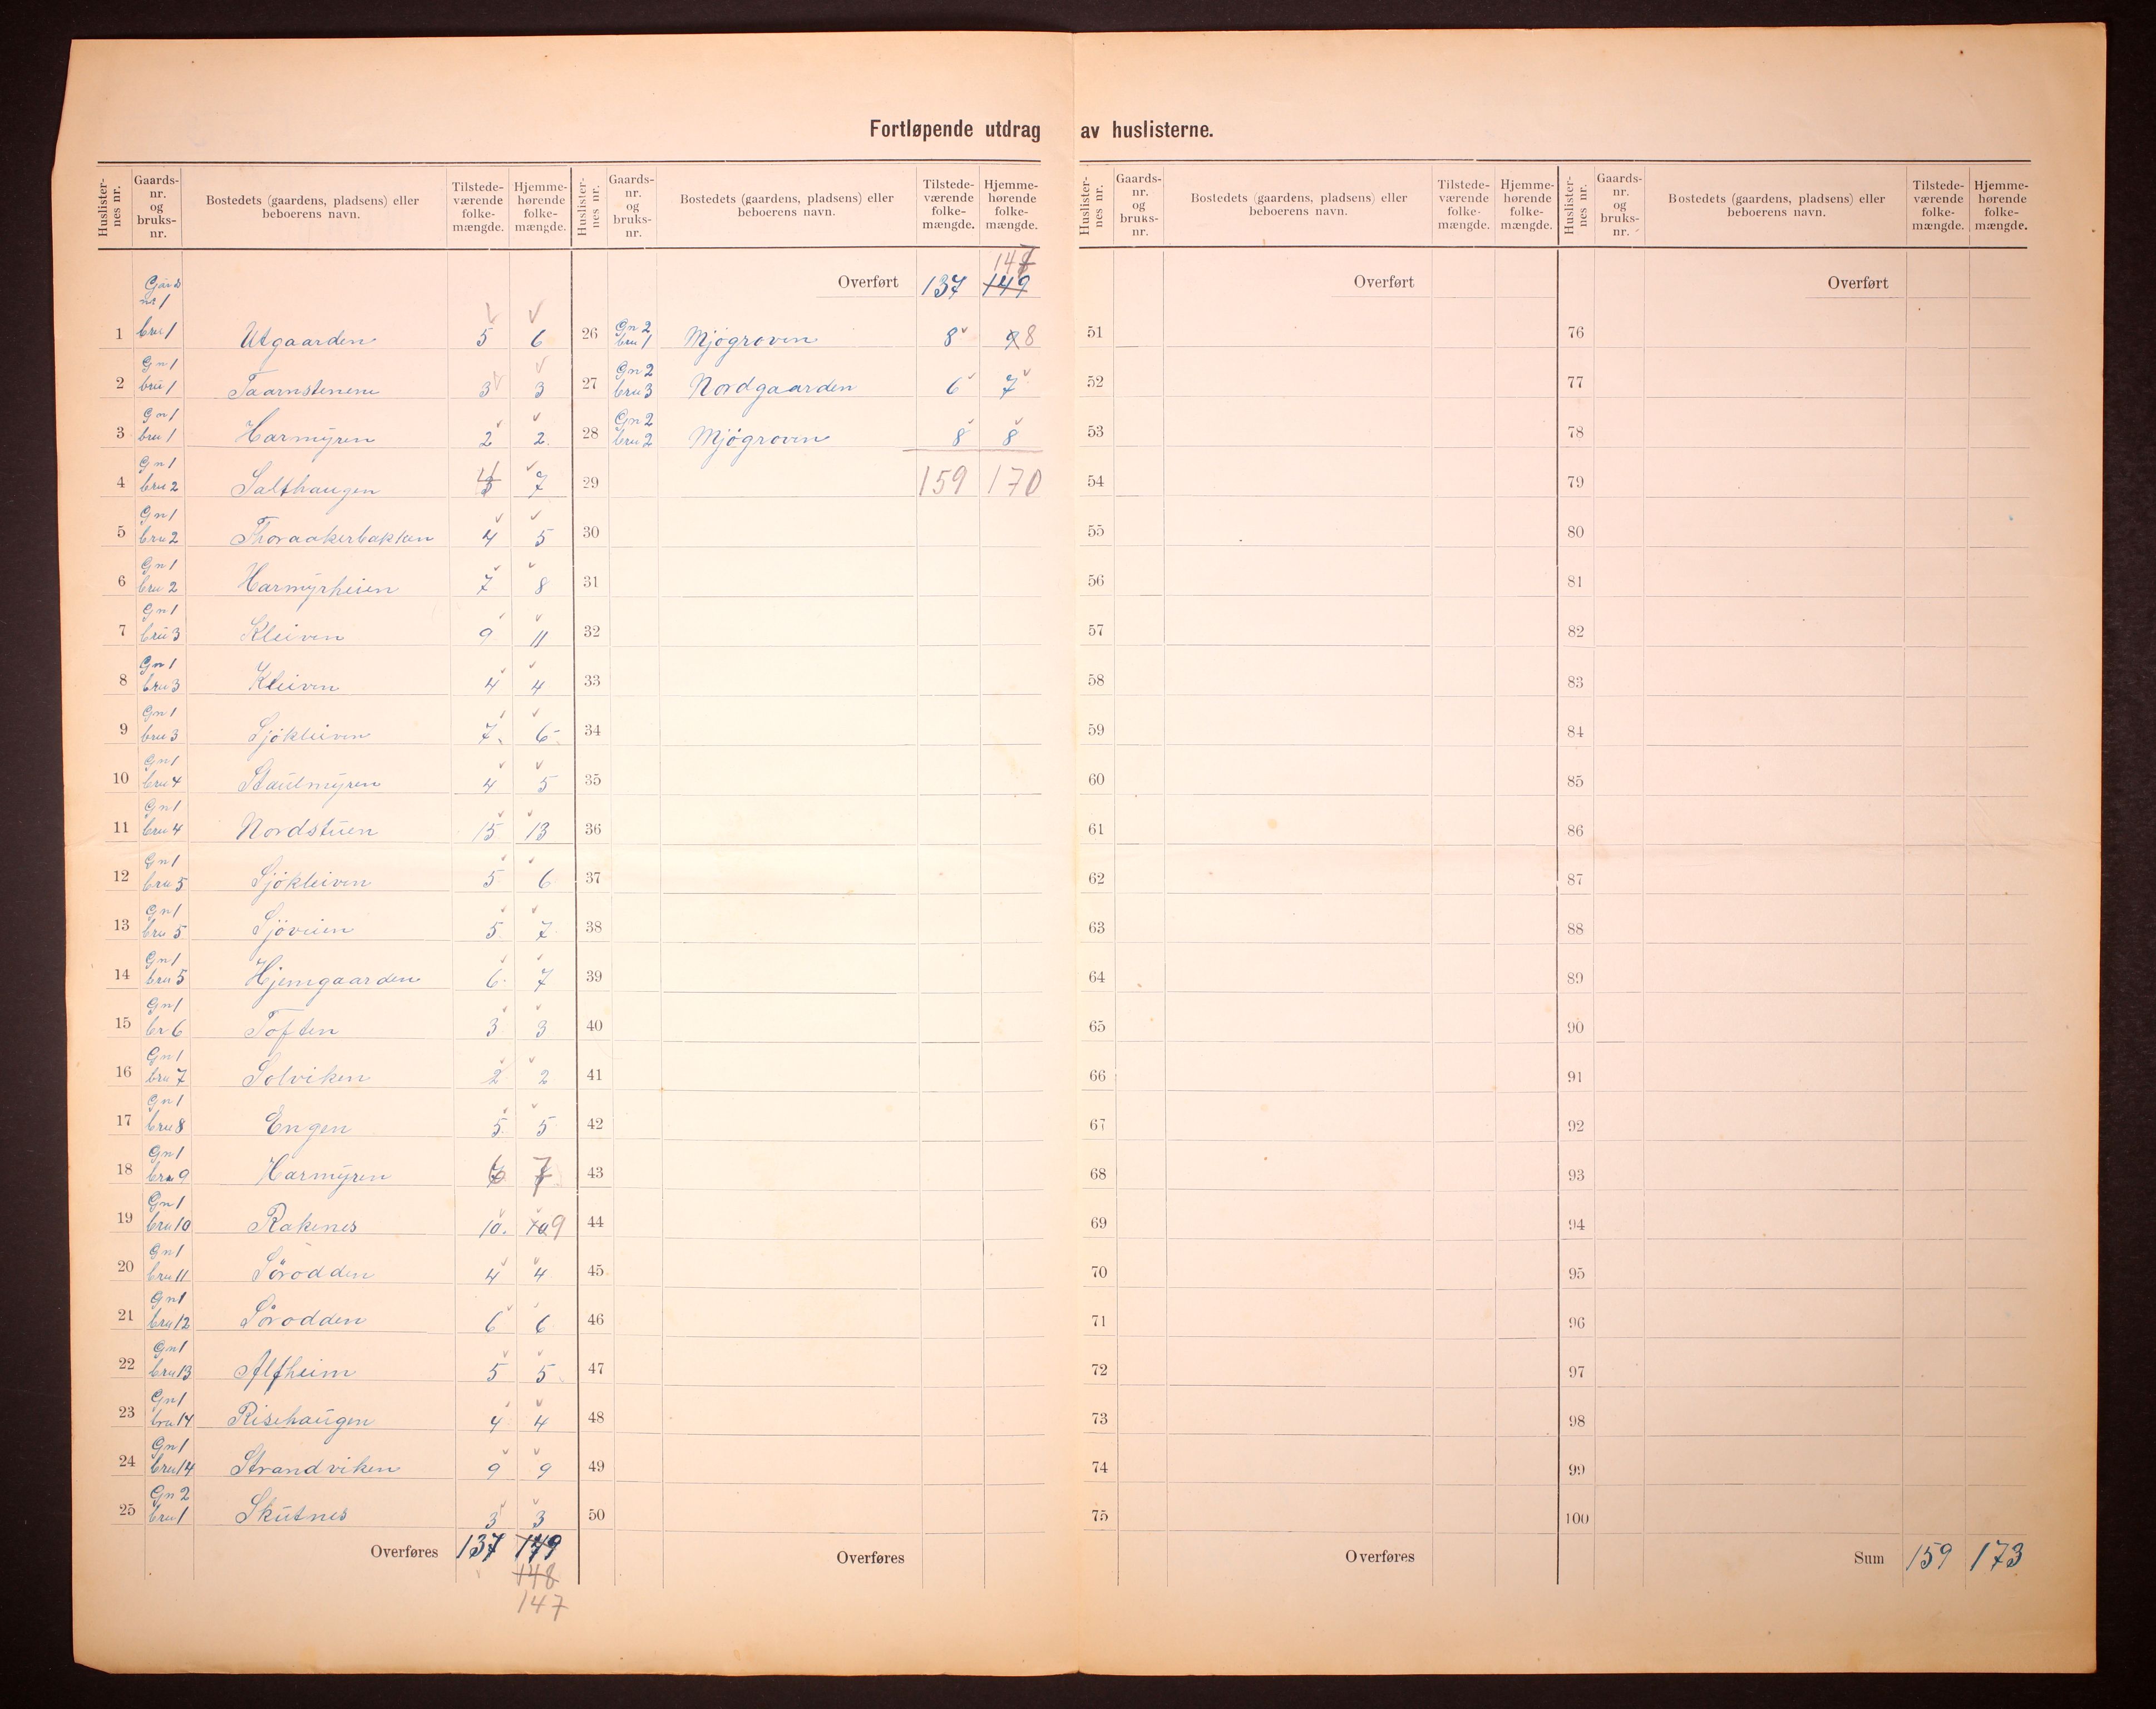 Fortløpende utdrag av huslisterne.
Huslister-nes nr. Gaards-nr. og bruks-nr. Bostedets (gaardens, pladsens) eller beboerens navn. Tilstede-værende folke-mængde. Hjemme-hørende folke-mængde.
Gards nr 1
1 bru 1 Utgaarden 5 6
2 Gn 1 bru 1 Taarnstenene 3 3
3 Gn 1 bru 1 Harmyren 2 2
4 Gn 1 bru 2 Salthaugen 7
5 Gn 1 bru 2 Thoraakerbakken 4 5
6 Gn 1 bru 2 Harmyrheien 7 8
7 Gn 1 bru 3 Kleiven 9 11
8 Gn 1 bru 3 Kleiven 4 4
9 Gn 1 bru 3 Sjökleiven 7 6
10 Gn 1 bru 4 Staulmyren 4 5
11 Gn 1 bru 4 Nordstuen 15 13
12 Gn 1 bru 5 Sjökleiven 5 6
13 Gn 1 bru 5 Sjöveien 5 7
14 Gn 1 bru 5 Hjemgaarden 6 7
15 Gn 1 br 6 Toften 3 3
16 Gn 1 bru 7 Solviken 2 2
17 Gn 1 bru 8 Engen 5 5
18 Gn 1 bru 9 Harmyren 6 7
19 Gn 1 bru 10 Rakenes 10 10 9
20 Gn 1 bru 11 Sörodden 4 4
21 Gn 1 bru 12 Sörodden 6 6
22 Gn 1 bru 13 Alfheim 5 5
23 Gn 1 bru 14 Risehaugen 4 4
24 Gn 1 bru 14 Strandviken 9 9
25 Gn 2 bru 1 Skutnes 3 3
Overføres 137 149
148
147
Huslister-nes nr. Gaards-nr. og bruks-nr. Bostedets (gaardens, pladsens) eller beboerens navn. Tilstede-værende folke-mængde. Hjemme-hørende folke-mængde.
147
Overført 137 149
26 Gn 2 bru 1 Mjögroven 8 9 8
27 Gn 2 bru 3 Nordgaarden 6 7
28 Gn 2 bru 2 Mjögroven 8 8
29 159 170
30
31
32
33
34
35
36
37
38
39
40
41
42
43
44
45
46
47
48
49
50
Overføres
Huslister-nes nr. Gaards-nr. og bruks-nr. Bostedets (gaardens, pladsens) eller beboerens navn. Tilstede-værende folke-mængde. Hjemme-hørende folke-mængde.
Overført
51
52
53
54
55
56
57
58
59
60
61
62
63
64
65
66
67
68
69
70
71
72
73
74
75
Overføres
Huslister-nes nr. Gaards-nr. og bruks-nr. Bostedets (gaardens, pladsens) eller beboerens navn. Tilstede-værende folke-mængde. Hjemme-hørende folke-mængde.
Overført
76
77
78
79
80
81
82
83
84
85
86
87
88
89
90
91
92
93
94
95
96
97
98
99
100
Sum 159 173